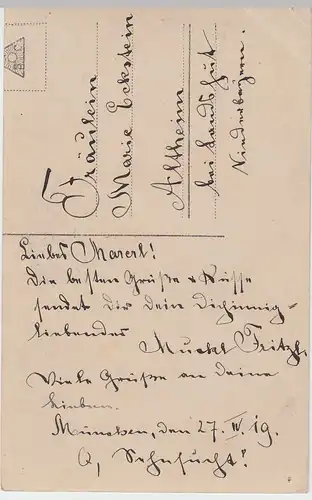 Fräulein
Marie Eckstein
Altheim
bei Landshut
Niederbayern.
Liebes Marerl!
Die besten Grüße & Küsse
sendet Dir Dein Dichinnig-
liebender
Fritzl.
Viele Grüße an deine
Lieben.
München, den 27. IV. 19.
O, Sehnsucht!